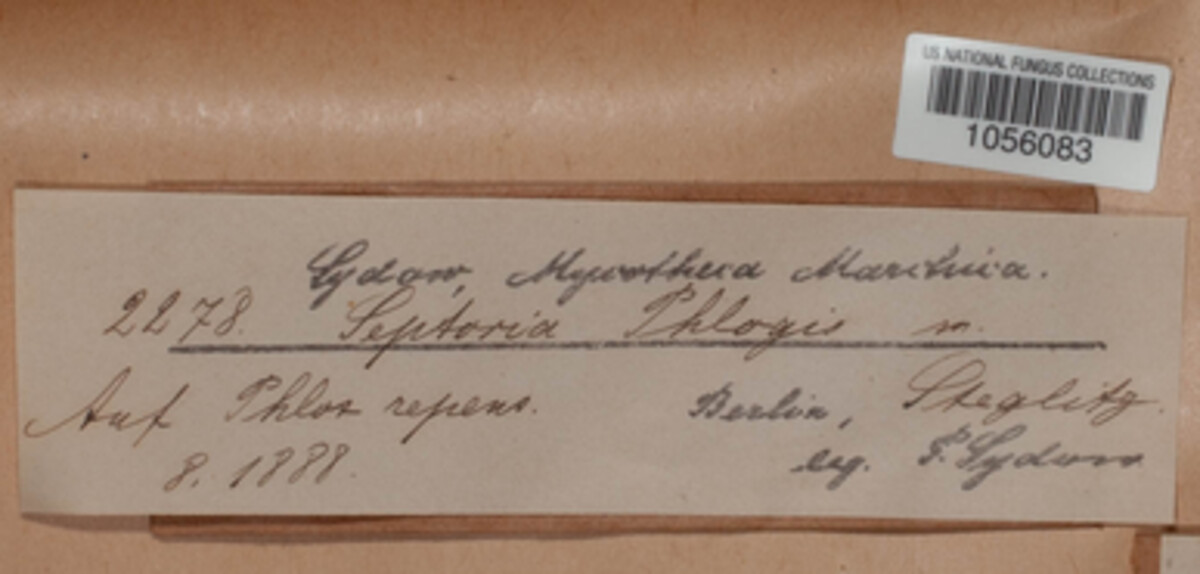 US NATIONAL FUNGUS COLLECTIONS
1056083
Sydow, Mycotheca Marchica.
2278. Septoria Phlogis m.
Auf Phlox repens. Berlin, Steglitz.
8. 1888. leg. P. Sydow